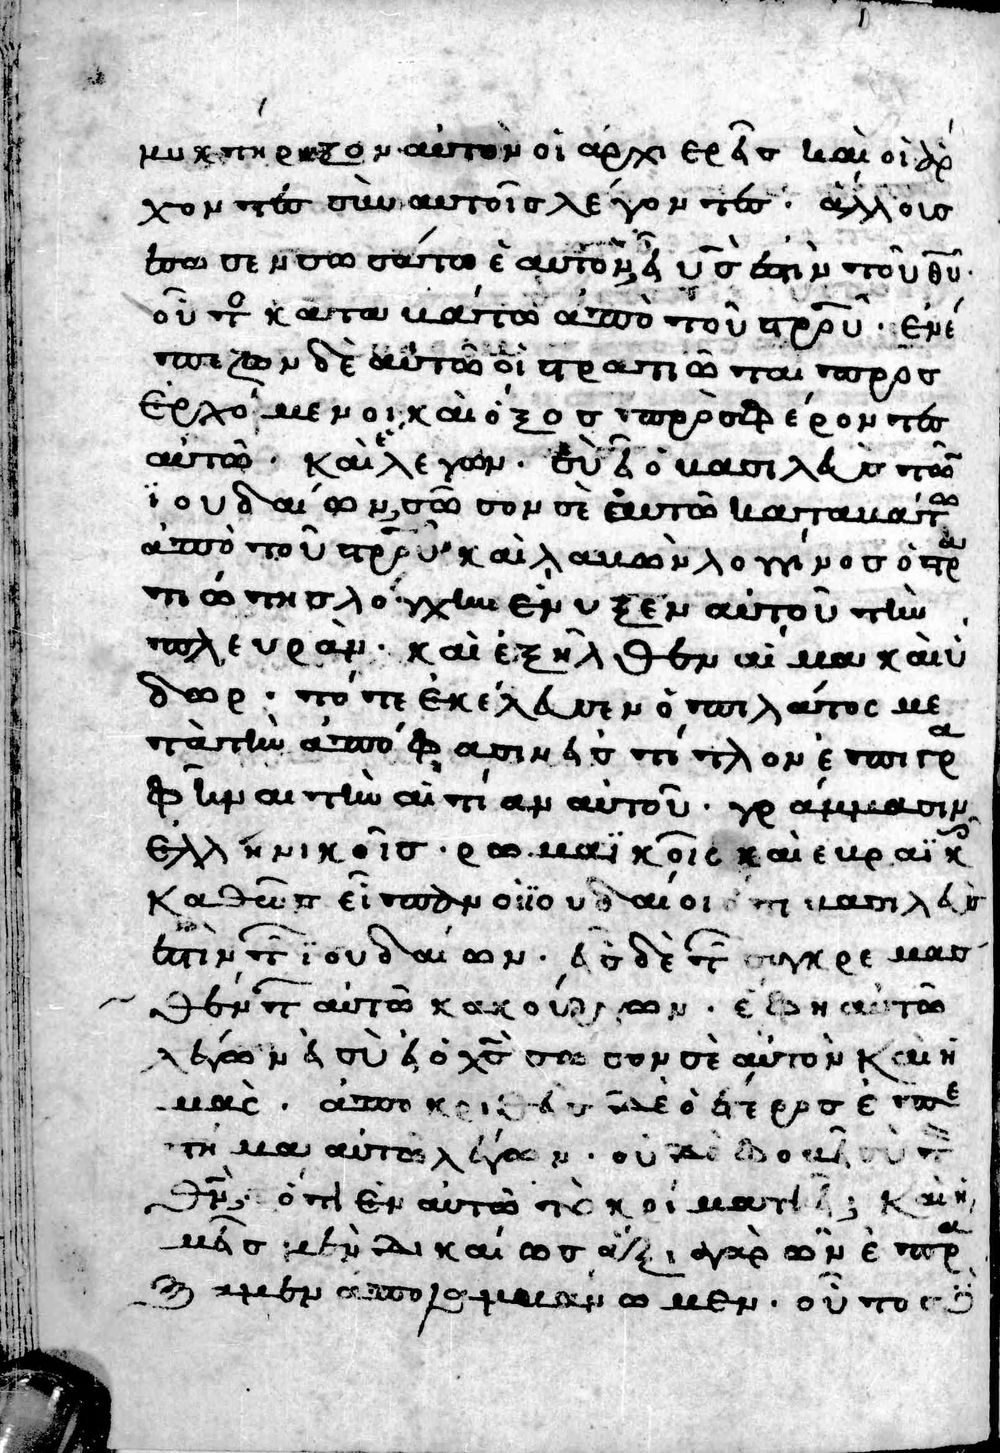 μυκτήριζον αὐτὸν οἱ ἀρχιερεῖς καὶ οἱ ἄρ
χοντες σὺν αὐτοῖς λέγοντες· ἄλλους
ἔσωσεν σωσάτω ἑαυτὸν εἰ υς̅ ἐστὶν τοῦ θυ̅·
οὗτο κατακάτω ἀπὸ τοῦ σρου̅· ἐνέ
πεζον δὲ αὐτῶ οἱ στρατιῶται προσ
ερχόμενοι καὶ ὄξος προσφέροντες
αὐτῶ· καὶ λέγων· σὺ εἶ ὁ βασιλεὺς τῶν
ϊουδαίων, σῶσον σὲ ἑαυτῶ κατακάτω
ἀπὸ τοῦ σρου̅ καὶ λαβὼν λογγίνος ὁ στρα
τιώτης λόγχην ἔνυξεν αὐτοῦ τὴν
πλευράν· καὶ ἐξῆλθεν αἷμα καὶ ὕ
δωρ· τότε ἐκέλευσεν ὁ πιλάτος με
τὰ τὴν ἀπόφασιν εἰς τίτλον ἐπιγρα
φῆναι τὴν αἰτίαν αὐτοῦ· γράμμασιν
ἑλληνικοῖς· ρωμαϊκοῖς καὶ ἑβραϊκοῖς
καθὼς εἶπον οἱ ϊουδαίοι ὅτι βασιλεὺς
ἐστὶν τῶν ϊουδαίων· εἷς δὲ τῶν συγκρεμασ
θέντων αὐτῶ κακούργων· ἔφη αὐτῶ
λέγων εἰ σὺ εἶ ὁ χς̅ σῶσον σὲ αὐτὸν καὶ ἡ
μᾶς· ἀποκριθεὶς δὲ ὁ ἕτερος ἐπε
τήμα αὐτῶ λέγων· οὐδὲ φοβεῖ σὺ τὸν
θν̅· ὅτι ἐν αὐτῶ τῶ κρίματι εἶ, καὶ ἡ
μεῖς μὲν δικαίως ἄξια γὰρ ὧν ἐπρά
ξαμεν ἀπολαμβάνωμεν· οὗτος